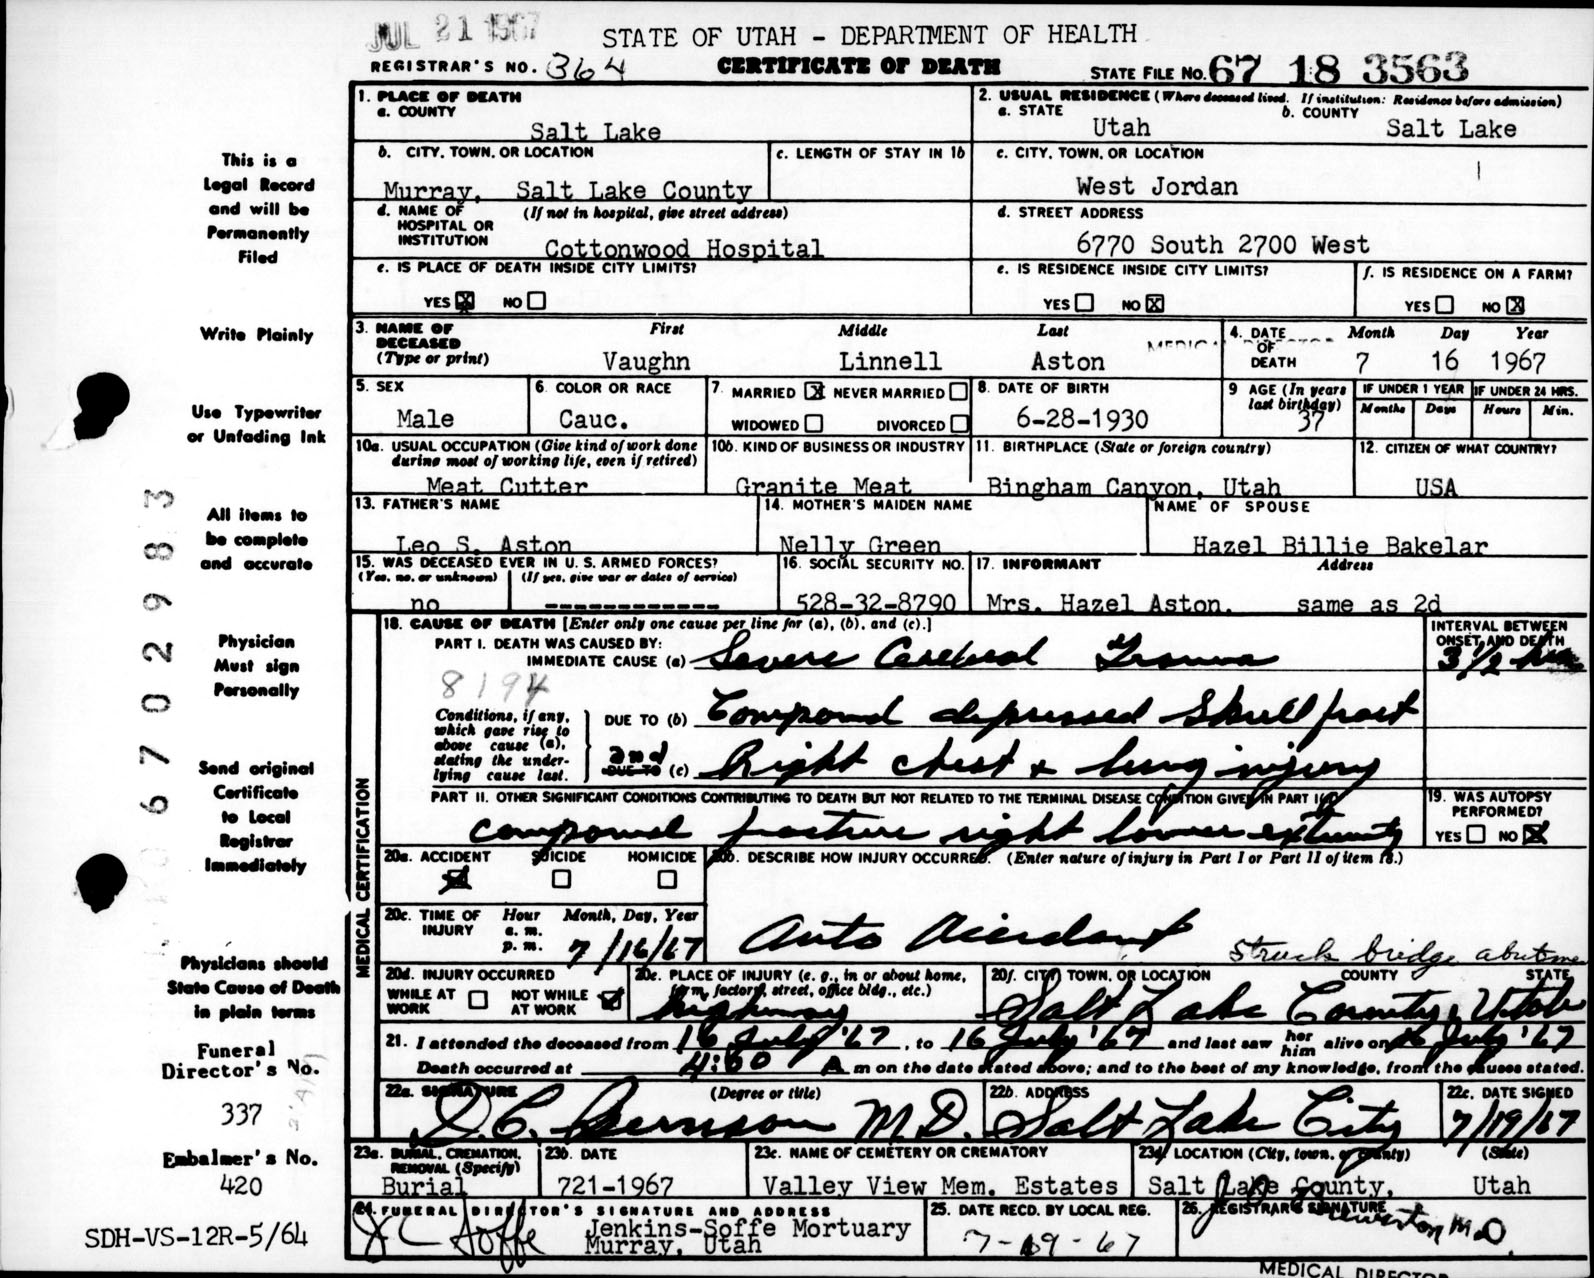 JUL 21 1967
STATE OF UTAH - DEPARTMENT OF HEALTH
REGISTRAR'S NO. 364
CERTIFICATE OF DEATH
STATE FILE NO. 67 18 3563
1. PLACE OF DEATH
a. COUNTY
Salt Lake
2. USUAL RESIDENCE (Where deceased lived. If institution: Residence before admission)
a. STATE
Utah
b. COUNTY
Salt Lake
b. CITY, TOWN, OR LOCATION
Murray, Salt Lake County
c. LENGTH OF STAY IN 1b
c. CITY, TOWN, OR LOCATION
West Jordan
d. NAME OF HOSPITAL OR INSTITUTION
(If not in hospital, give street address)
Cottonwood Hospital
d. STREET ADDRESS
6770 South 2700 West
e. IS PLACE OF DEATH INSIDE CITY LIMITS?
YES X NO
e. IS RESIDENCE INSIDE CITY LIMITS?
YES NO X
f. IS RESIDENCE ON A FARM?
YES NO X
3. NAME OF DECEASED
(Type or print)
First Middle Last
Vaughn Linnell Aston
4. DATE OF DEATH
Month Day Year
7 16 1967
5. SEX
Male
6. COLOR OR RACE
Cauc.
7. MARRIED X NEVER MARRIED
WIDOWED DIVORCED
8. DATE OF BIRTH
6-28-1930
9 AGE (In years last birthday)
37
IF UNDER 1 YEAR
Months Days
IF UNDER 24 HRS.
Hours Min.
10a. USUAL OCCUPATION (Give kind of work done during most of working life, even if retired)
Meat Cutter
10b. KIND OF BUSINESS OR INDUSTRY
Granite Meat
11. BIRTHPLACE (State or foreign country)
Bingham Canyon, Utah
12. CITIZEN OF WHAT COUNTRY?
USA
13. FATHER'S NAME
Leo S. Aston
14. MOTHER'S MAIDEN NAME
Nelly Green
NAME OF SPOUSE
Hazel Billie Bakelar
15. WAS DECEASED EVER IN U. S. ARMED FORCES?
(Yes, no, or unknown) (If yes, give war or dates of service)
no -------------
16. SOCIAL SECURITY NO.
528-32-8790
17. INFORMANT Address
Mrs. Hazel Aston, same as 2d
MEDICAL CERTIFICATION
18. CAUSE OF DEATH [Enter only one cause per line for (a), (b), and (c).]
INTERVAL BETWEEN ONSET AND DEATH
PART I. DEATH WAS CAUSED BY:
IMMEDIATE CAUSE (a) Severe Cerebral Trauma
3 1/2 hrs
8194
Conditions, if any, which gave rise to above cause (a), stating the underlying cause last.
DUE TO (b) Compound depressed Skull fract
and
DUE TO (c) Right chest & lung injury
PART II. OTHER SIGNIFICANT CONDITIONS CONTRIBUTING TO DEATH BUT NOT RELATED TO THE TERMINAL DISEASE CONDITION GIVEN IN PART I(a)
compound fracture right lower extremity
19. WAS AUTOPSY PERFORMED?
YES NO X
20a. ACCIDENT SUICIDE HOMICIDE
20b. DESCRIBE HOW INJURY OCCURRED. (Enter nature of injury in Part I or Part II of item 18.)
Auto Accident
Struck bridge abutme
20c. TIME OF INJURY
Hour Month, Day, Year
a. m.
p. m. 7/16/67
20d. INJURY OCCURRED
WHILE AT WORK NOT WHILE AT WORK
20e. PLACE OF INJURY (e. g., in or about home, farm, factory, street, office bldg., etc.)
highway
20f. CITY, TOWN, OR LOCATION COUNTY STATE
Salt Lake County, Utah
21. I attended the deceased from 16 July '67, to 16 July '67 and last saw her him alive on 16 July '67
Death occurred at 4:00 A m on the date stated above; and to the best of my knowledge, from the causes stated.
22a. SIGNATURE (Degree or title)
M.D.
22b. ADDRESS
Salt Lake City
22c. DATE SIGNED
7/19/67
23a. BURIAL, CREMATION, REMOVAL (Specify)
Burial
23b. DATE
721-1967
23c. NAME OF CEMETERY OR CREMATORY
Valley View Mem. Estates
23d. LOCATION (City, town, or county) (State)
Salt Lake County, Utah
24. FUNERAL DIRECTOR'S SIGNATURE AND ADDRESS
Jenkins-Soffe Mortuary
Murray, Utah
25. DATE RECD. BY LOCAL REG.
7-19-67
26. REGISTRAR'S SIGNATURE
MEDICAL DIRECTOR
This is a
Legal Record
and will be
Permanently
Filed
Write Plainly
Use Typewriter
or Unfading Ink
All items to
be complete
and accurate
Physician
Must sign
Personally
Send original
Certificate
to Local
Registrar
Immediately
Physicians should
State Cause of Death
in plain terms
Funeral
Director's No.
337
Embalmer's No.
420
SDH-VS-12R-5/64
6702983